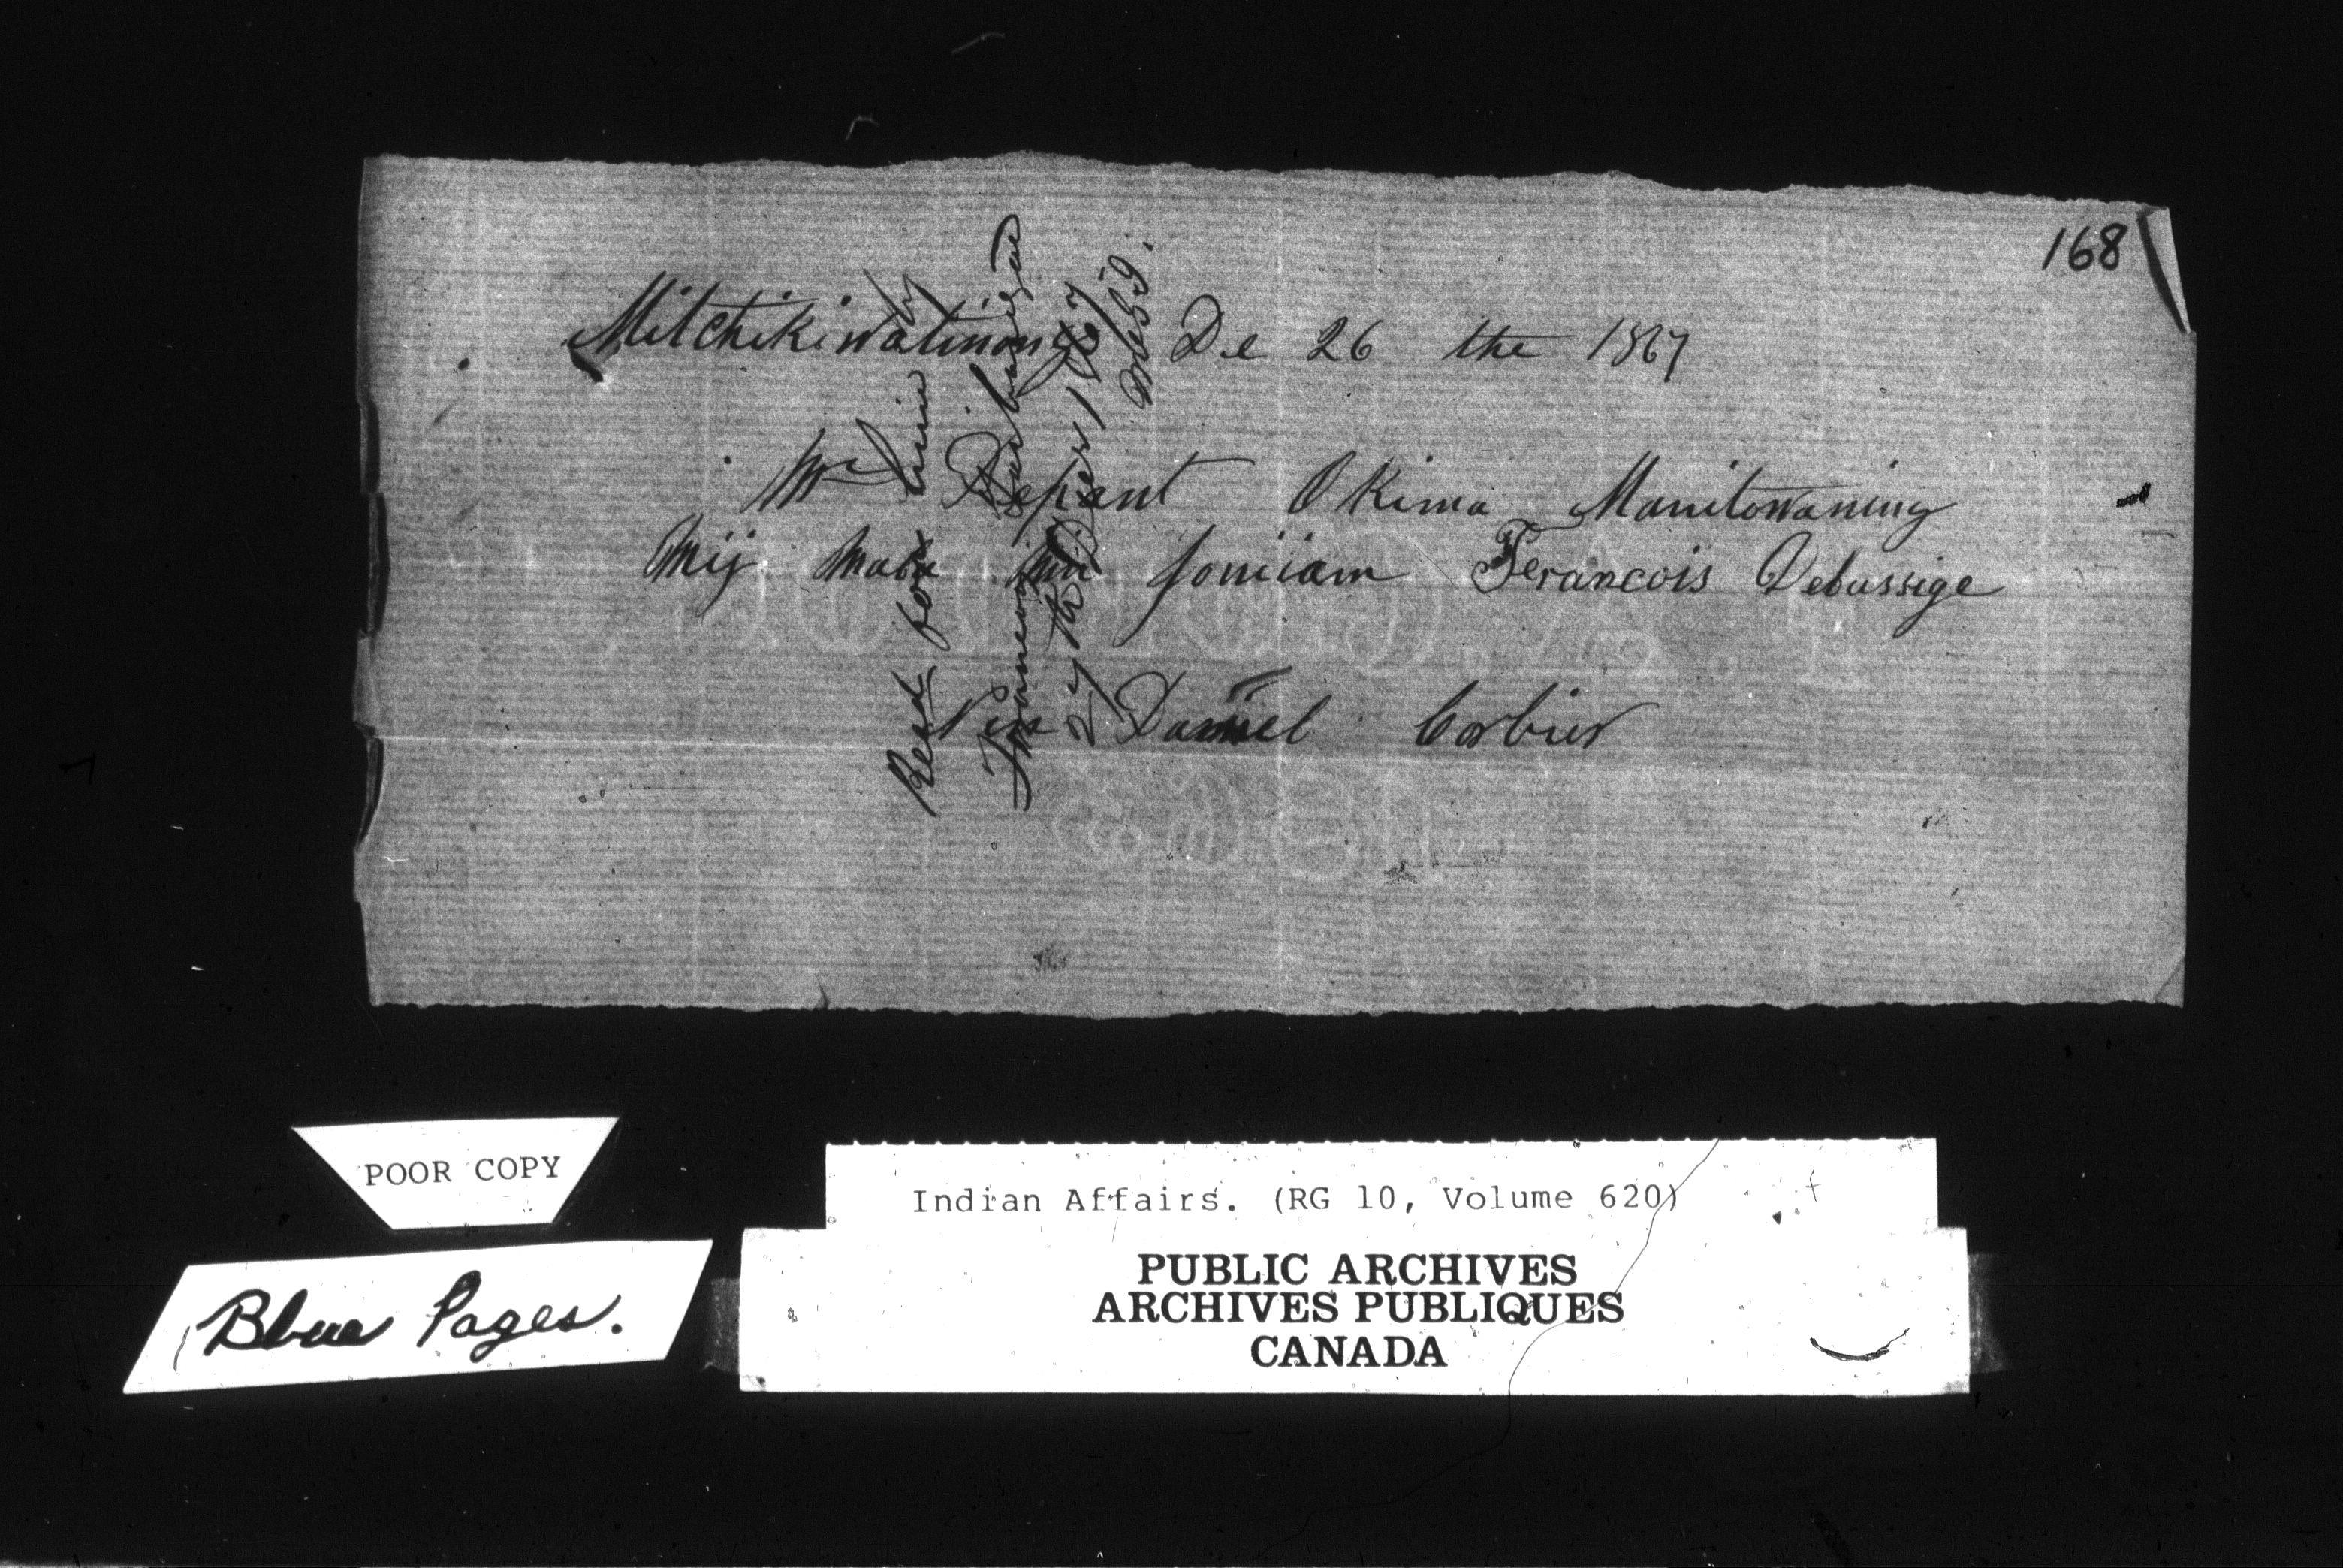 168
Mitchikiwatinong De 26 the 1867
Mr Depant Okima Manitowaning
Mij maba nin joniiam Ferancois Debassige
Nin Daniel Corbier
27th Decer 1867
POOR COPY
Blue Pages.
Indian Affairs. (RG 10, Volume 620)
PUBLIC ARCHIVES
ARCHIVES PUBLIQUES
CANADA